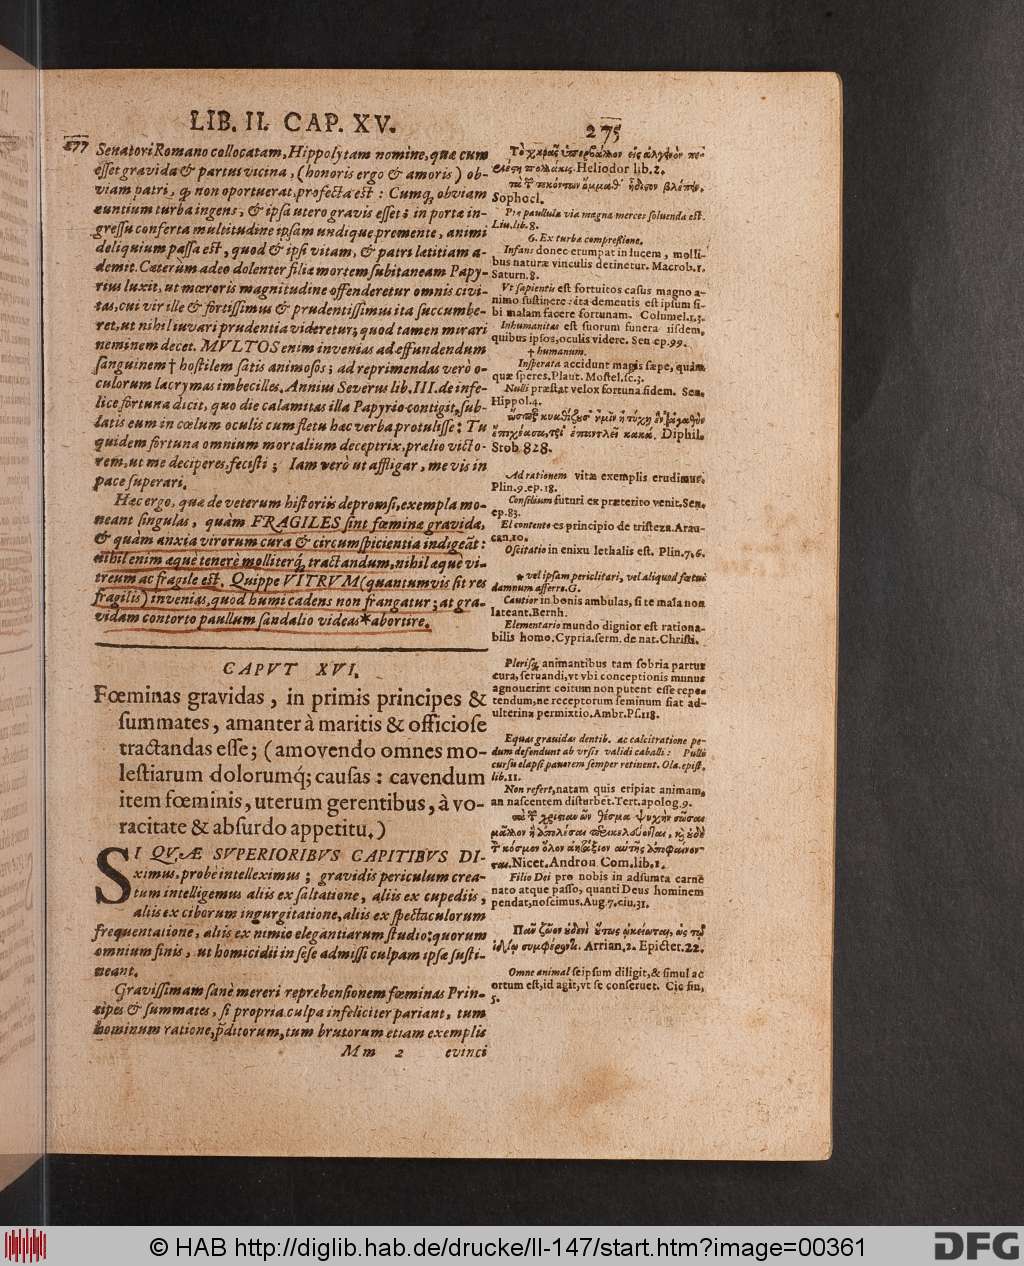 LIB. II. CAP. XV.
275
277
Senatori Romano collocatam, Hippolytam nomine, quæ cum
esset gravida & partus vicina, (honoris ergo & amoris) ob-
viam patri, q̃ non oportuerat, profecta est : Cumq; obviam
euntium turba ingens, & ipsa utero gravis esset; in porta in-
gressu conferta multitudine ipsam undique premente, animi
deliquium passa est, quod & ipsi vitam, & patri lætitiam a-
demit. Cæterùm adeo dolenter filiæ mortem subitaneam Papy-
rius luxit, ut mœroris magnitudine offenderetur omnis civi-
tas, cui vir ille & fortissimus & prudentissimus ita succumbe-
ret, ut nihil iuvari prudentia videretur; quod tamen mirari
neminem decet. MVLTOS enim invenias ad effundendum
sanguinem † hostilem satis animosos; ad reprimendas verò o-
culorum lacrymas imbecilles. Annius Severus lib. III. de infe-
lice fortuna dicit, quo die calamitas illa Papyrio contigit, sub-
latis eum in cœlum oculis cum fletu hæc verba protulisse: Tu
quidem fortuna omnium mortalium deceptrix, prælio victo-
rem, ut me deciperes, fecisti; Iam verò ut affligar, me vis in
pace superari.
Hæc ergo, quæ de veterum historiis depromsi, exempla mo-
neant singulas, quàm FRAGILES sint fœminæ gravidæ,
& quàm anxia virorum cura & circumspicientia indigeãt:
nihil enim æquè tenerè molliterq; tractandum, nihil æquè vi-
treum ac fragile est. Quippe VITRVM (quantumvis sit res
fragilis) invenias, quod humi cadens non frangatur; at gra-
vidam contorto paullum sandalio videas * abortire.
CAPVT XVI.
Fœminas gravidas, in primis principes &
summates, amanter à maritis & officiose
tractandas esse; (amovendo omnes mo-
lestiarum dolorumq́; causas : cavendum
item fœminis, uterum gerentibus, à vo-
racitate & absurdo appetitu.)
SI QVÆ SVPERIORIBVS CAPITIBVS DI-
ximus, probè intelleximus; gravidis periculum crea-
tum intelligemus aliis ex saltatione, aliis ex cupediis,
aliis ex ciborum ingurgitatione, aliis ex spectaculorum
frequentatione, aliis ex nimio elegantiarum studio: quorum
omnium finis, ut homicidii in sese admissi culpam ipsæ susti-
neant.
Gravissimam sanè mereri reprehensionem fœminas Prin-
cipes & summates, si propria culpa infeliciter pariant, tum
hominum ratione, p̃ditorum, tum brutorum etiam exemplis
Mm 2 evinci
Heliodor lib. 2.
Sophocl.
Pro paullula via magna merces soluenda est.
Liu. lib. 8.
6. Ex turba compressione.
Infans donec erumpat in lucem, molli-
bus naturæ vinculis detinetur. Macrob. 1.
Saturn. 8.
Vt sapientis est fortuitos casus magno a-
nimo sustinere : ita dementis est ipsum si-
bi malam facere fortunam. Columel. 1. 3.
Inhumanitas est suorum funera iisdem,
quibus ipsos, oculis videre. Sen. ep. 99.
† humanum.
Insperata accidunt magis sæpe, quàm
quæ speres. Plaut. Mostel. sc. 3.
Nulli præstat velox fortuna fidem. Sen.
Hippol. 4.
Diphil.
Stob 828.
Ad rationem vitæ exemplis erudimur.
Plin. 9. ep. 18.
Consilium futuri ex præterito venit. Sen.
ep. 83.
El contento es principio de tristeza. Arau-
can. 10.
Oscitatio in enixu lethalis est. Plin. 7, 6.
* vel ipsam periclitari, vel aliquod fœtui
damnum afferre. G.
Cautior in bonis ambulas, si te mala non
lateant. Bernh.
Elementario mundo dignior est rationa-
bilis homo. Cypria. serm. de nat. Christi.
Plerisq; animantibus tam sobria partus
cura, seruandi, vt vbi conceptionis munus
agnouerint coitum non putent esse repe-
tendum, ne receptorum seminum fiat ad-
ulterina permixtio. Ambr. Ps. 118.
Equas gravidas dentib. ac calcitratione pe-
dum defendunt ab vrsis validi caballi : Pulli
cursu elapsi pauorem semper retinent. Ola. epist.
lib. 11.
Non refert, natam quis eripiat animam,
an nascentem disturbet. Tert. apolog. 9.
Nicet. Andron. Com. lib. 1.
Filio Dei pro nobis in adsumta carne
nato atque passo, quanti Deus hominem
pendat, noscimus. Aug. 7. ciu. 31.
Arrian. 2. Epictet. 22.
Omne animal seipsum diligit, & simul ac
ortum est, id agit, vt se conseruet. Cic fin.
5.
© HAB http://diglib.hab.de/drucke/ll-147/start.htm?image=00361
DFG